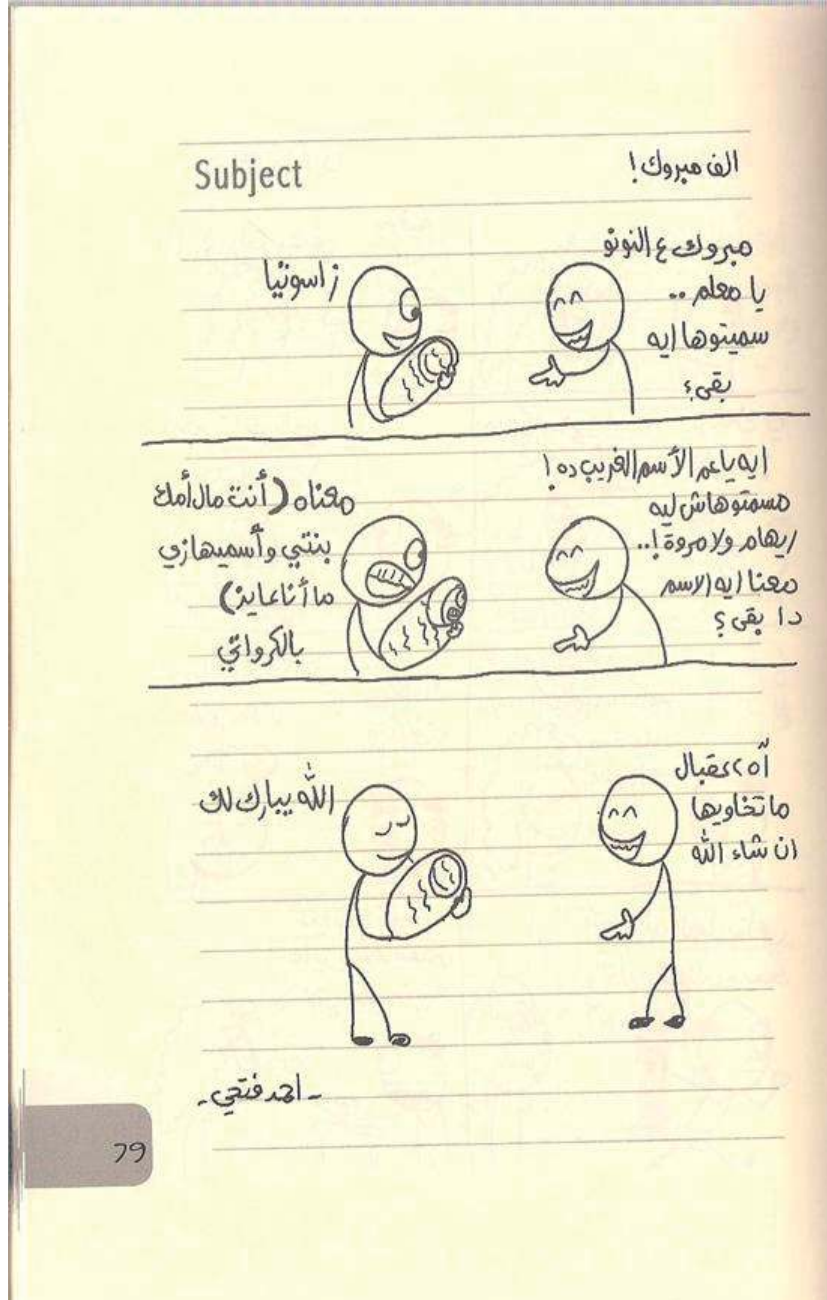 Subject
الف مبروك !
مبروك ع النونو
يا معلم ..
سميتوها ايه
بقى؟
زاسونيا
ايه ياعم الأسم الغريب ده !
مسمتوهاش ليه
ريهام ولا مروة !..
معنا ايه الاسم
دا بقى ؟
معناه (أنت مال أمك
بنتي وأسميها زي
ما أنا عايز)
بالكرواتي
آه، عقبال
ما تخاويها
ان شاء الله
الله يبارك لك
- احمد فتحي -
79